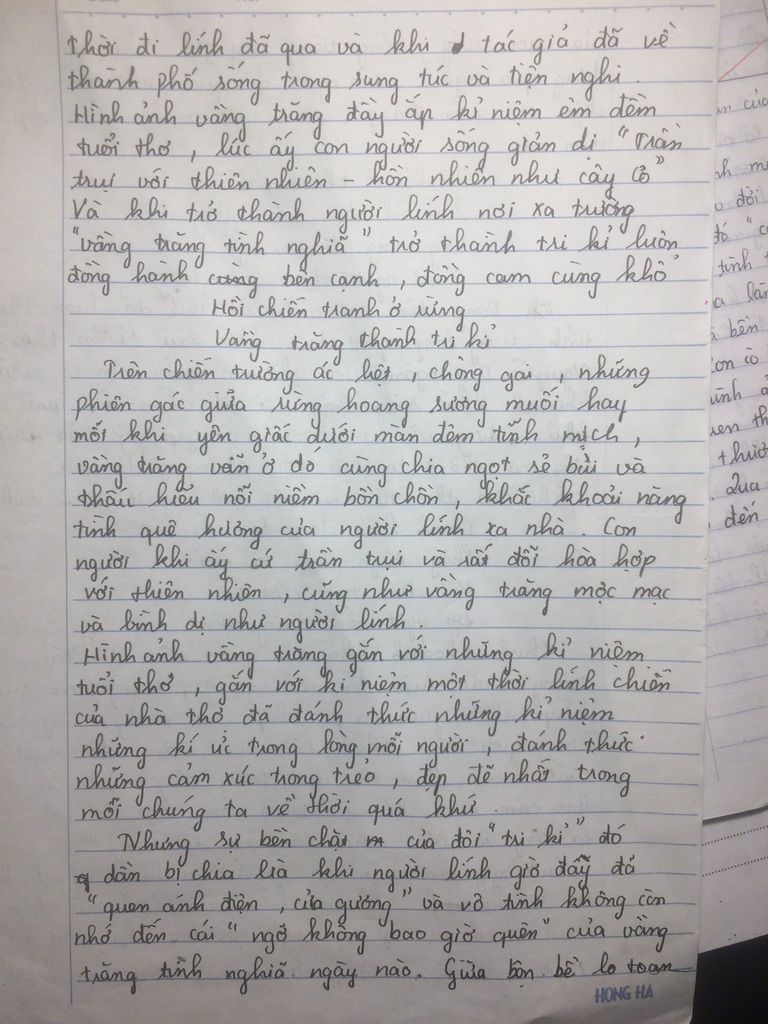 thời đi lính đã qua và khi tác giả đã về
thành phố sống trong sung túc và tiện nghi.
Hình ảnh vầng trăng đầy ắp kỉ niệm êm đềm
tuổi thơ, lúc ấy con người sống giản dị "Trần
trụi với thiên nhiên - hồn nhiên như cây cỏ"
Và khi trở thành người lính nơi xa trường
"vầng trăng tình nghĩa" trở thành tri kỉ luôn
đồng hành bên cạnh, đồng cam cùng khổ
Hồi chiến tranh ở rừng
Vầng trăng thành tri kỉ
Trên chiến trường ác liệt, chông gai, những
phiên gác giữa rừng hoang sương muối hay
mỗi khi yên giấc dưới màn đêm tĩnh mịch,
vầng trăng vẫn ở đó cùng chia ngọt sẻ bùi và
thấu hiểu nỗi niềm bồn chồn, khắc khoải nặng
tình quê hương của người lính xa nhà. Con
người khi ấy cứ trần trụi và rất đỗi hòa hợp
với thiên nhiên, cũng như vầng trăng mộc mạc
và bình dị như người lính.
Hình ảnh vầng trăng gắn với những kỉ niệm
tuổi thơ, gắn với kỉ niệm một thời lính chiến
của nhà thơ đã đánh thức những kỉ niệm
những kí ức trong lòng mỗi người, đánh thức
những cảm xúc trong trẻo, đẹp đẽ nhất trong
mỗi chúng ta về thời quá khứ.
Nhưng sự bền chặt của đôi "tri kỉ" đó
dần bị chia lìa khi người lính giờ đây đã
"quen ánh điện, cửa gương" và vô tình không còn
nhớ đến cái "ngỡ không bao giờ quên" của vầng
trăng tình nghĩa ngày nào. Giữa bộn bề lo toan
HONG HA